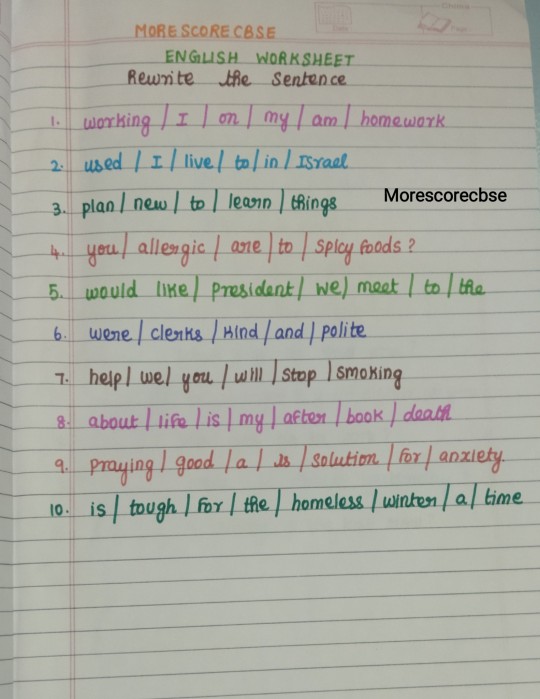 MORE SCORE CBSE
ENGLISH WORKSHEET
Rewrite the Sentence
1. working / I / on / my / am / homework
2. used / I / live / to / in / Israel
3. plan / new / to / learn / things
Morescorecbse
4. you / allergic / are / to / spicy foods ?
5. would like / President / we / meet / to / the
6. were / clerks / kind / and / polite
7. help / we / you / will / stop / smoking
8. about / life / is / my / after / book / death
9. praying / good / a / is / solution / for / anxiety.
10. is / tough / for / the / homeless / winter / a / time